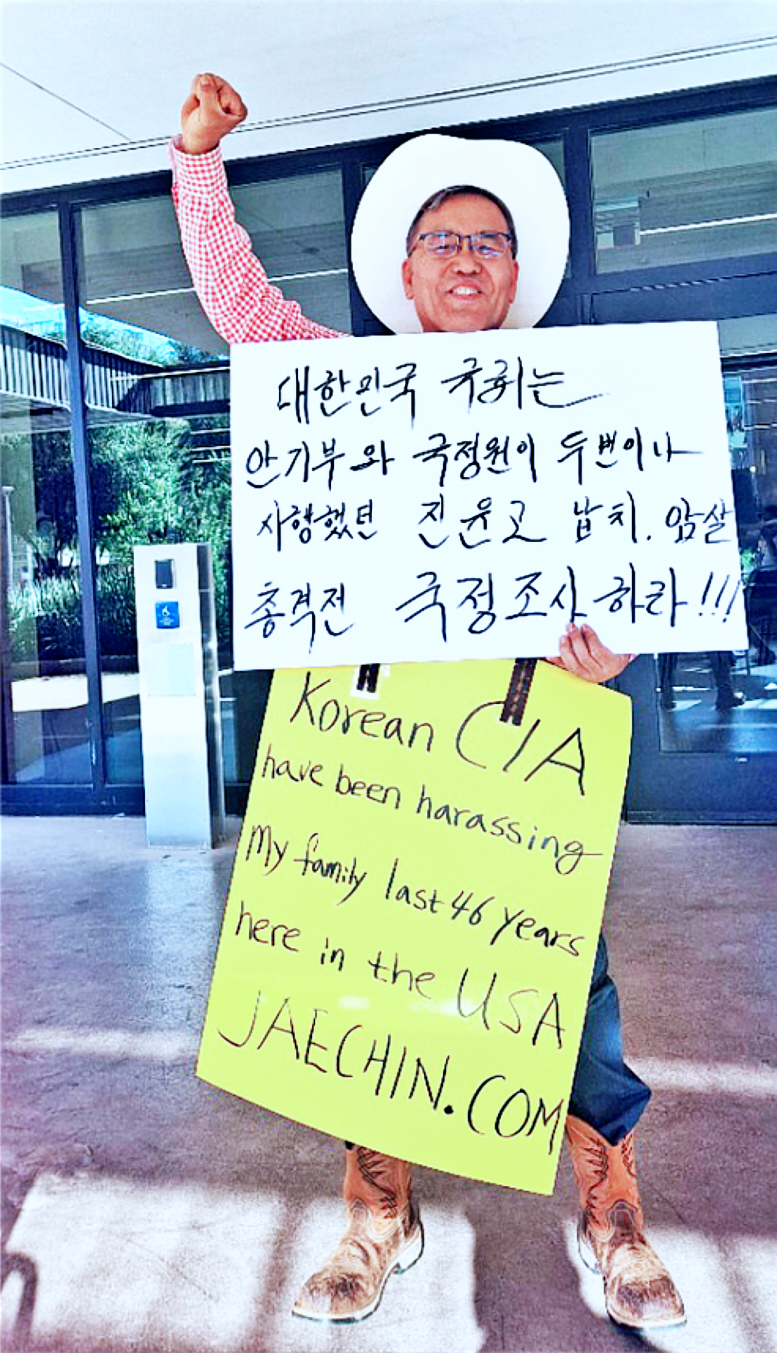 대한민국 국회는
안기부와 국정원이 두번이나
자행했던 진윤고 납치. 암살
총격전 국정조사하라!!!
Korean CIA
have been harassing
My family last 46 years
here in the USA
JAECHIN.COM